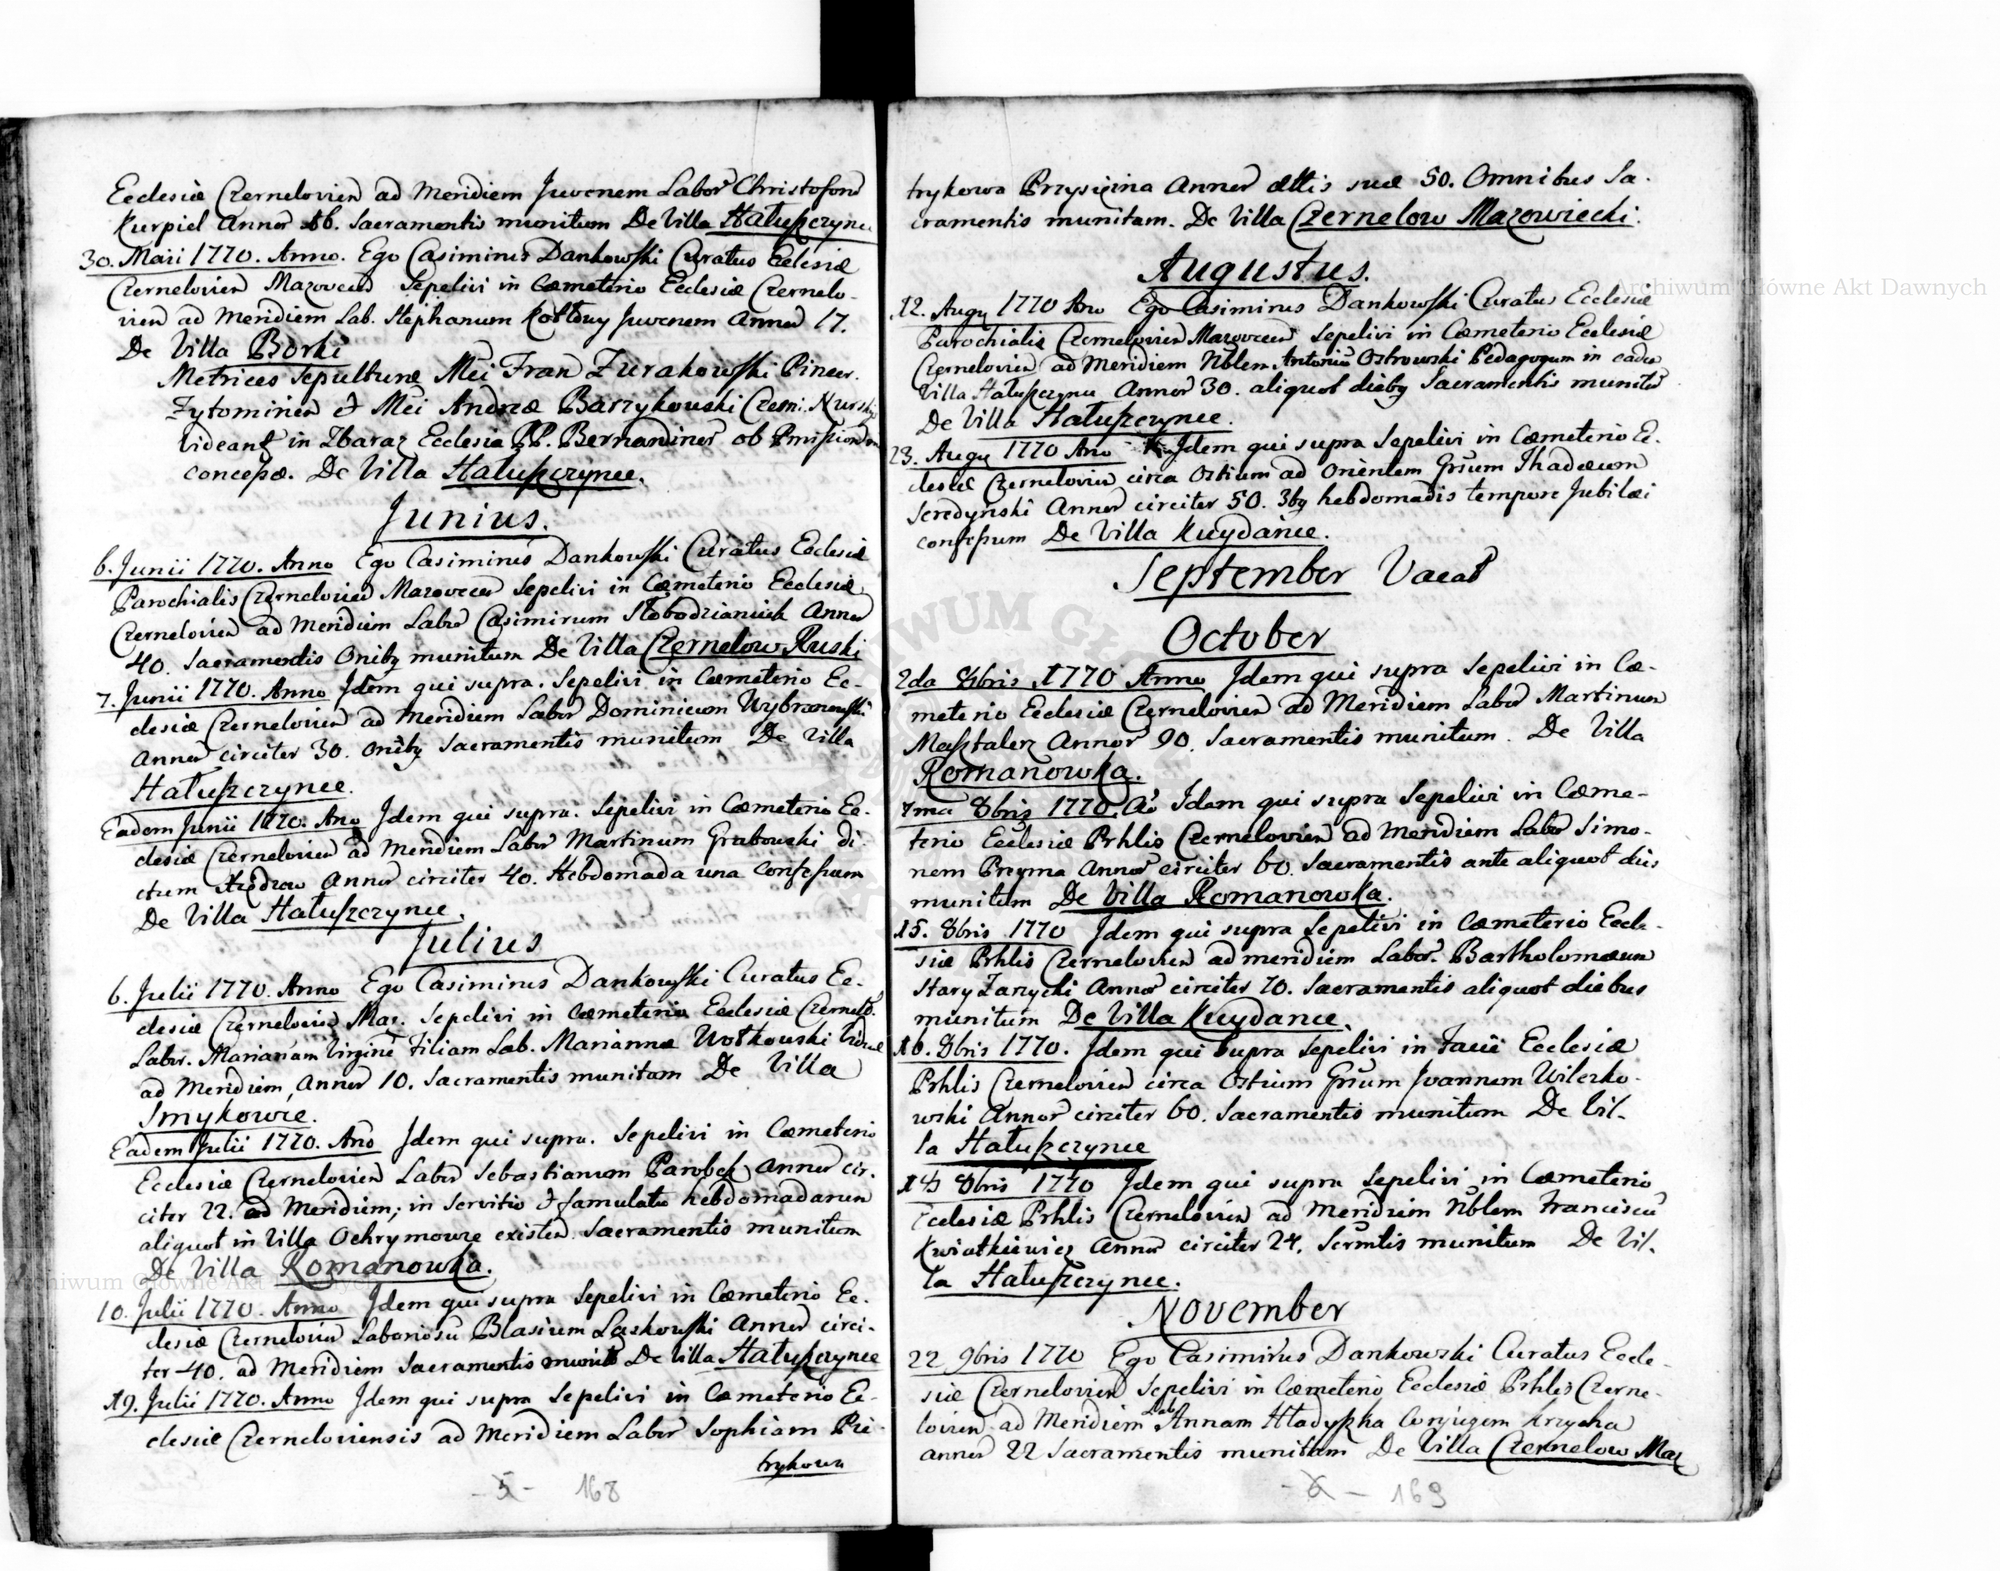 Ecclesiæ Czernelovien ad Meridiem Juvenem Labor Christofora
Kurpiel Annor 16. Sacramentis munitum De Villa Hałuszczynce
30. Maii 1770. Anno. Ego Casimirus Dankowski Curatus Eclesiæ
Czernelovien Mazovecen Sepelivi in Cæmeterio Ecclesiæ Czernelo-
vien ad Meridiem Lab. Stephanum Kołtuy Juvenem Annor 17.
De Villa Borki
Metrices Sepulturæ Mci Fran Zurakowski Pincer.
Zytomirien & Mci Andreæ Barzykowski Czesni. Nurski
Videant in Zbaraz Ecclesia PP. Bernardinor ob
concessæ. De Villa Hałuszczynce.
Junius.
6. Junii 1770. Anno Ego Casimirus Dankowski Curatus Ecclesiæ
Parochialis Czernelovien Mazovecen Sepelivi in Cæmeterio Ecclesiæ
Czernelovien ad Meridiem Labor Casimirum Słobodzianiuk Annor
40. Sacramentis Onibg munitum De Villa Czernelow Ruski
7. Junii 1770. Anno Jdem qui supra. Sepelivi in Cæmeterio Ec-
clesiæ Czernelovien ad Meridiem Labor Dominicum Wybranowski
Annor circiter 30. Onibg Sacramentis munitum De Villa
Hałuszczynce.
Eadem Junii 1770. Ano Jdem qui supra. Sepelivi in Cæmeterio Ec-
clesiæ Czernelovien ad Meridiem Labor Martinum Grabowski di
ctum Annor circiter 40. Hebdomada una Confessum
De Villa Hałuszczynce.
Julius
6. Julii 1770. Anno Ego Casimirus Dankowski Curatus Ec-
clesiæ Czernelovien Maz. Sepelivi in Cæmeterio Ecclesiæ Czernelo.
Labor. Mariannam Virginẽ Filiam Lab. Mariannæ Wołkowski Viduæ
ad Meridiem, Annor 10. Sacramentis munitam De Villa
Smykowce.
Eadem Julii 1770. Ano Jdem qui supra. Sepelivi in Cæmeterio
Ecclesiæ Czernelovien Labor Sebastianum Parobek Annor cir-
citer 22. ad Meridiem; in Servitio & famulatu hebdomadarum
aliquot in Villa Ochrymowce existen Sacramentis munitum
De Villa Romanowka.
10. Julii 1770. Anno Jdem qui supra Sepelivi in Cæmeterio Ec-
clesiæ Czernelovien Laboriosũ Blasium Laskowski Annor circi-
ter 40. ad Meridiem Sacramentis munitũ De Villa Hałuszczynce
19. Julii 1770. Anno Jdem qui supra Sepelivi in Cæmeterio Ec-
clesiæ Czerneloviensis ad Meridiem Labor Sophiam Pie-
trykowa
- 5 - 168
trykowa Przysięzna Annor ættis suæ 50. Omnibus Sa-
cramentis munitam. De Villa Czernelow Mazowiecki.
Augustus.
12. Augg 1770 Ano Ego Casimirus Dankowski Curatus Ecclesiæ
Parochialis Czernelovien Mazovecen Sepelivi in Cæmeterio Ecclesiæ
Czernelovien ad Meridiem Nblem Antoniũ Ostrowski Pedagogum in eadem
Villa Hałuszczynce Annor 30. aliquot diebg Sacramentis munitũ
De Villa Hałuszczynce.
23. Augg 1770 Ano Jdem qui supra Sepelivi in Cæmeterio Ec-
clesiæ Czernelovien circa Ostium ad Orientem Gnsum Thadæum
Seredynski Annor circiter 50. 3bg hebdomadis tempore Jubilæi
confessum De Villa Kuydance.
September Vacat
October
2da 8bris 1770 Anno Jdem qui supra Sepelivi in Cæ-
meterio Ecclesiæ Czernelovien ad Meridiem Labor Martinum
Masztalerz Annor 90. Sacramentis munitum. De Villa
Romanowka.
7ma 8bris 1770. Ao Jdem qui supra Sepelivi in Cæme-
terio Ecclesiæ Prhlis Czernelovien ad Meridiem Labor Simo-
nem Pryma Annor circiter 60. Sacramentis ante aliquot dies
munitum De Villa Romanowka.
15. 8bris 1770 Jdem qui supra Sepelivi in Cæmeterio Eccle-
siæ Prhlis Czernelovien ad meridiem Labor. Bartholomæum
Stary Zarycki Annor circiter 70. Sacramentis aliquot diebus
munitum De Villa Kuydance.
16. 8bris 1770. Jdem qui supra Sepelivi in facie Ecclesiæ
Prhlis Czernelovien circa Ostium Gnsum Joannem Wilczko-
wski Annor circiter 60. Sacramentis munitum De Vil-
la Hałuszczynce
18 8bris 1770 Jdem qui supra Sepelivi in Cæmeterio
Ecclesiæ Prhlis Czernelovien ad Meridiem Nblem Franciscũ
Kwiatkiewicz Annor circiter 24. Scrmtis munitum De Vil-
la Hałuszczynce.
November
22 9bris 1770 Ego Casimirus Dankowski Curatus Eccle-
siæ Czernelovien Sepelivi in Cæmeterio Ecclesiæ Prhles Czerne-
lovien ad Meridiem Lab Annam Hładyszka Conjugem Hrycka
annor 22 Sacramentis munitam De Villa Czernelow Maz
- 6 - 169
Archiwum Główne Akt Dawnych
Archiwum Główne Akt Dawnych